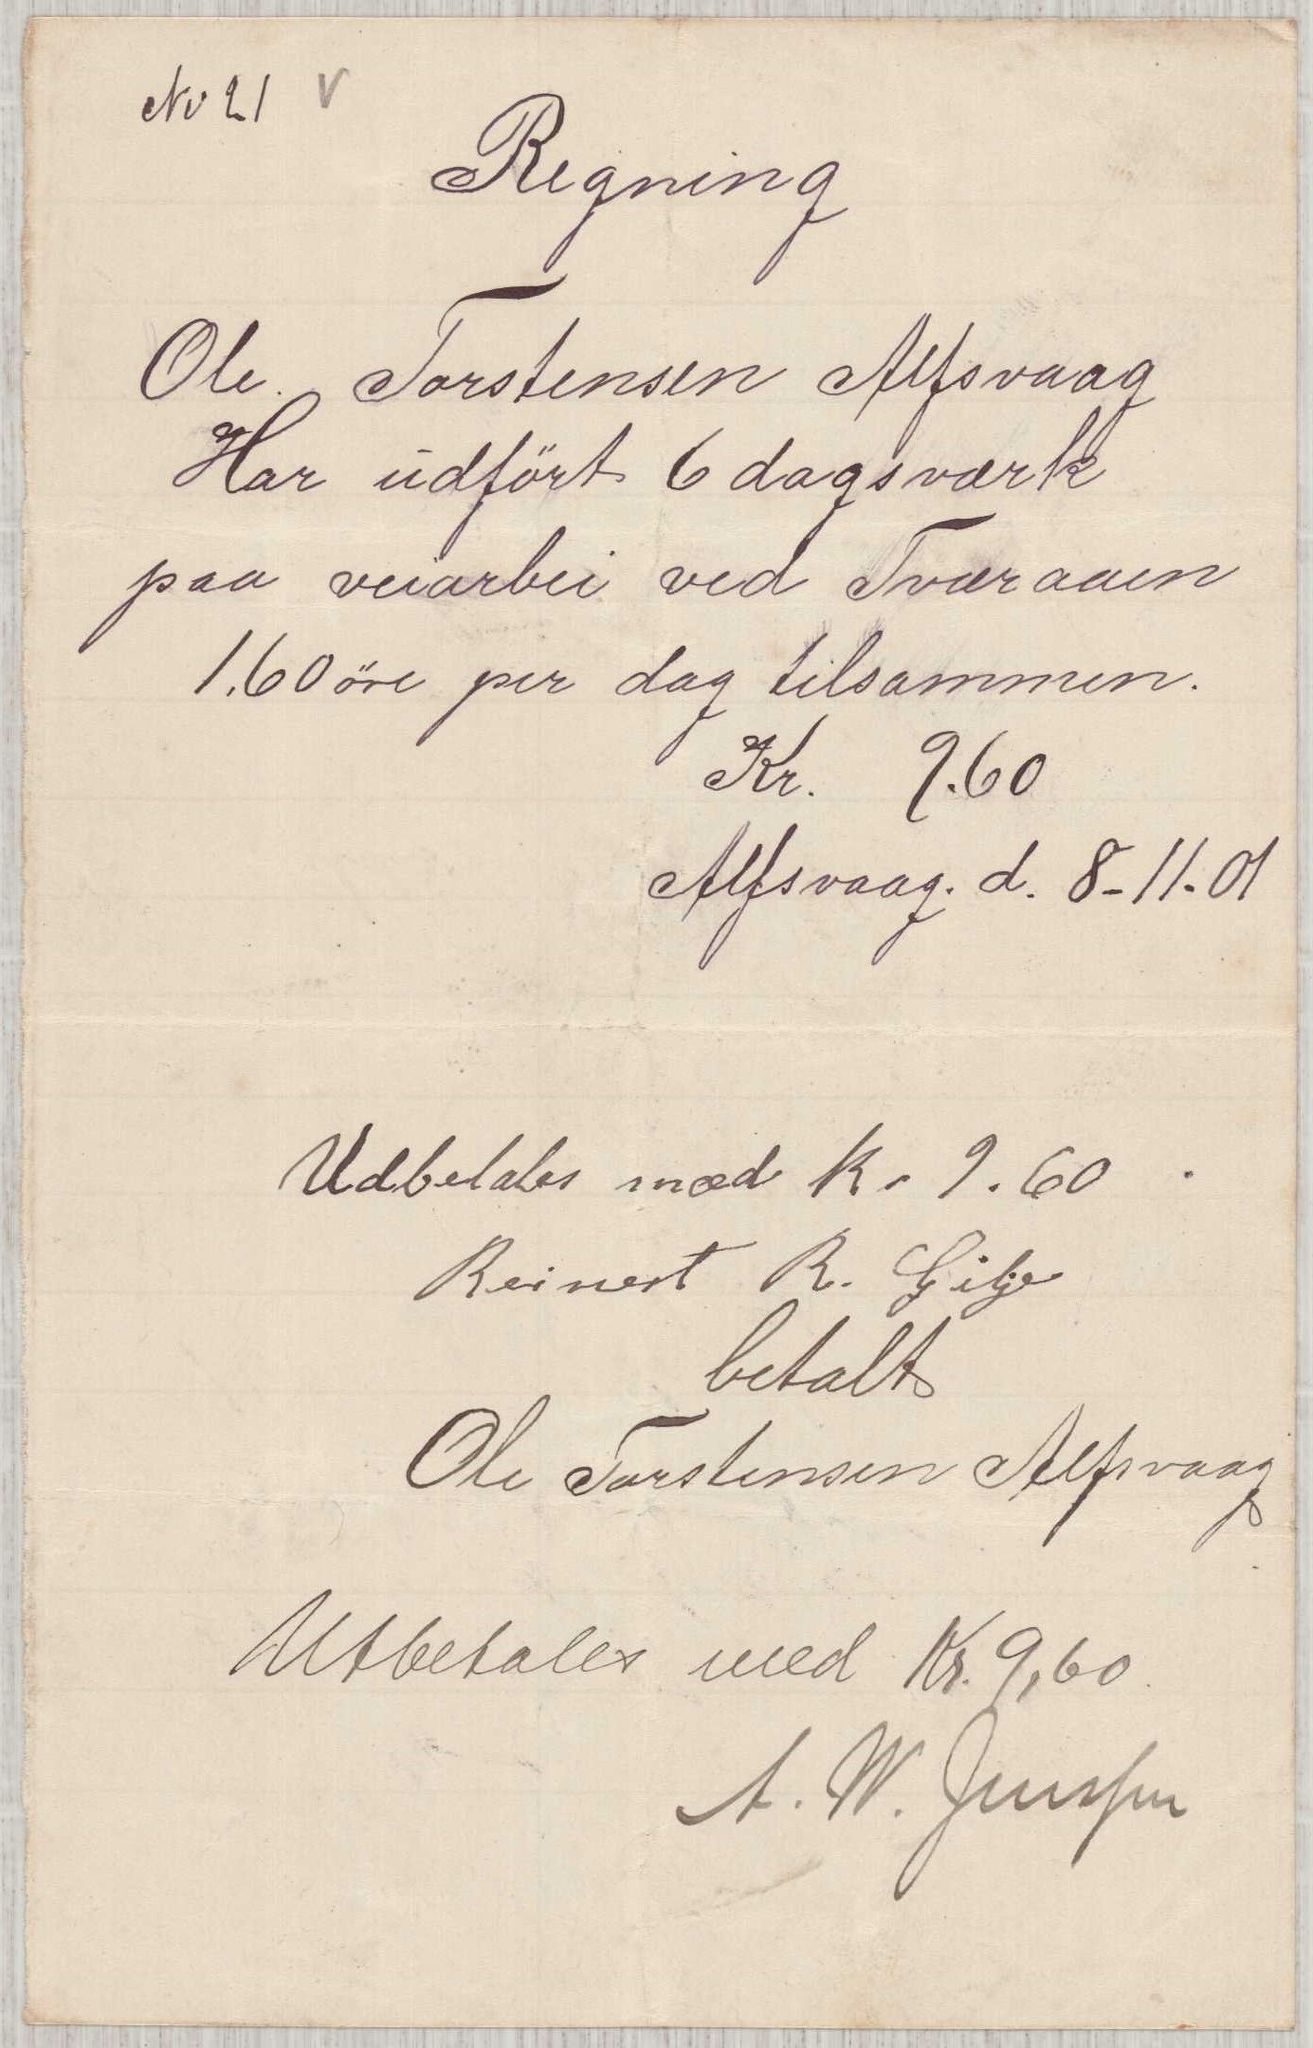 No 21 V
Regning
Ole. Torstensen Alfsvaag
Har udfört 6 dagsværk
paa veiarbei ved Tværaaen
1.60 öre per dag tilsammen.
Kr. 9.60
Alfsvaag. d. 8-11-01
Udbetales med Kr 9.60
Reinert R. Gilje
betalt
Ole Torstensen Alfsvaag
Utbetales med Kr. 9,60
A. W. Jenssen